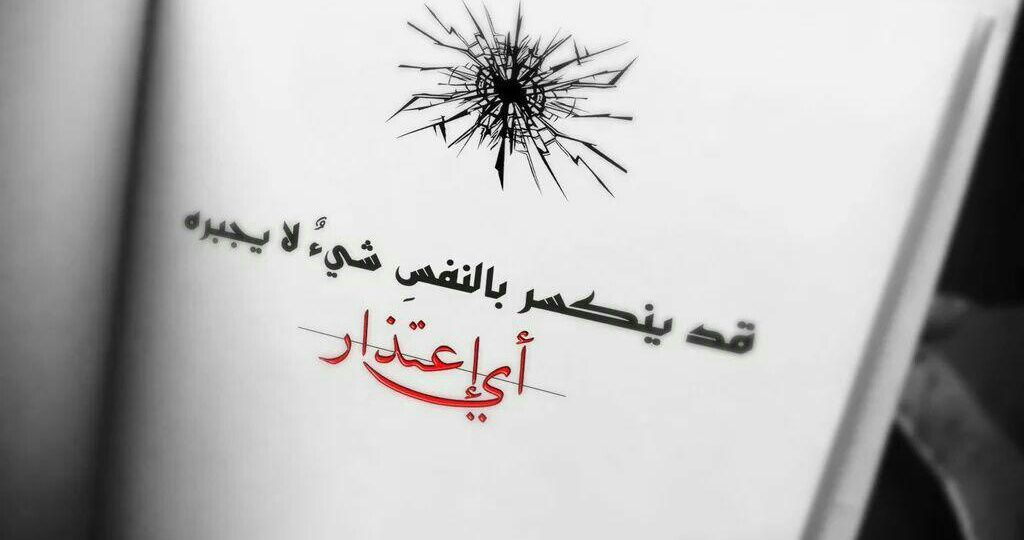 قد ينكسر بالنفسِ شيءٌ لا يجبره
أي إعتذار